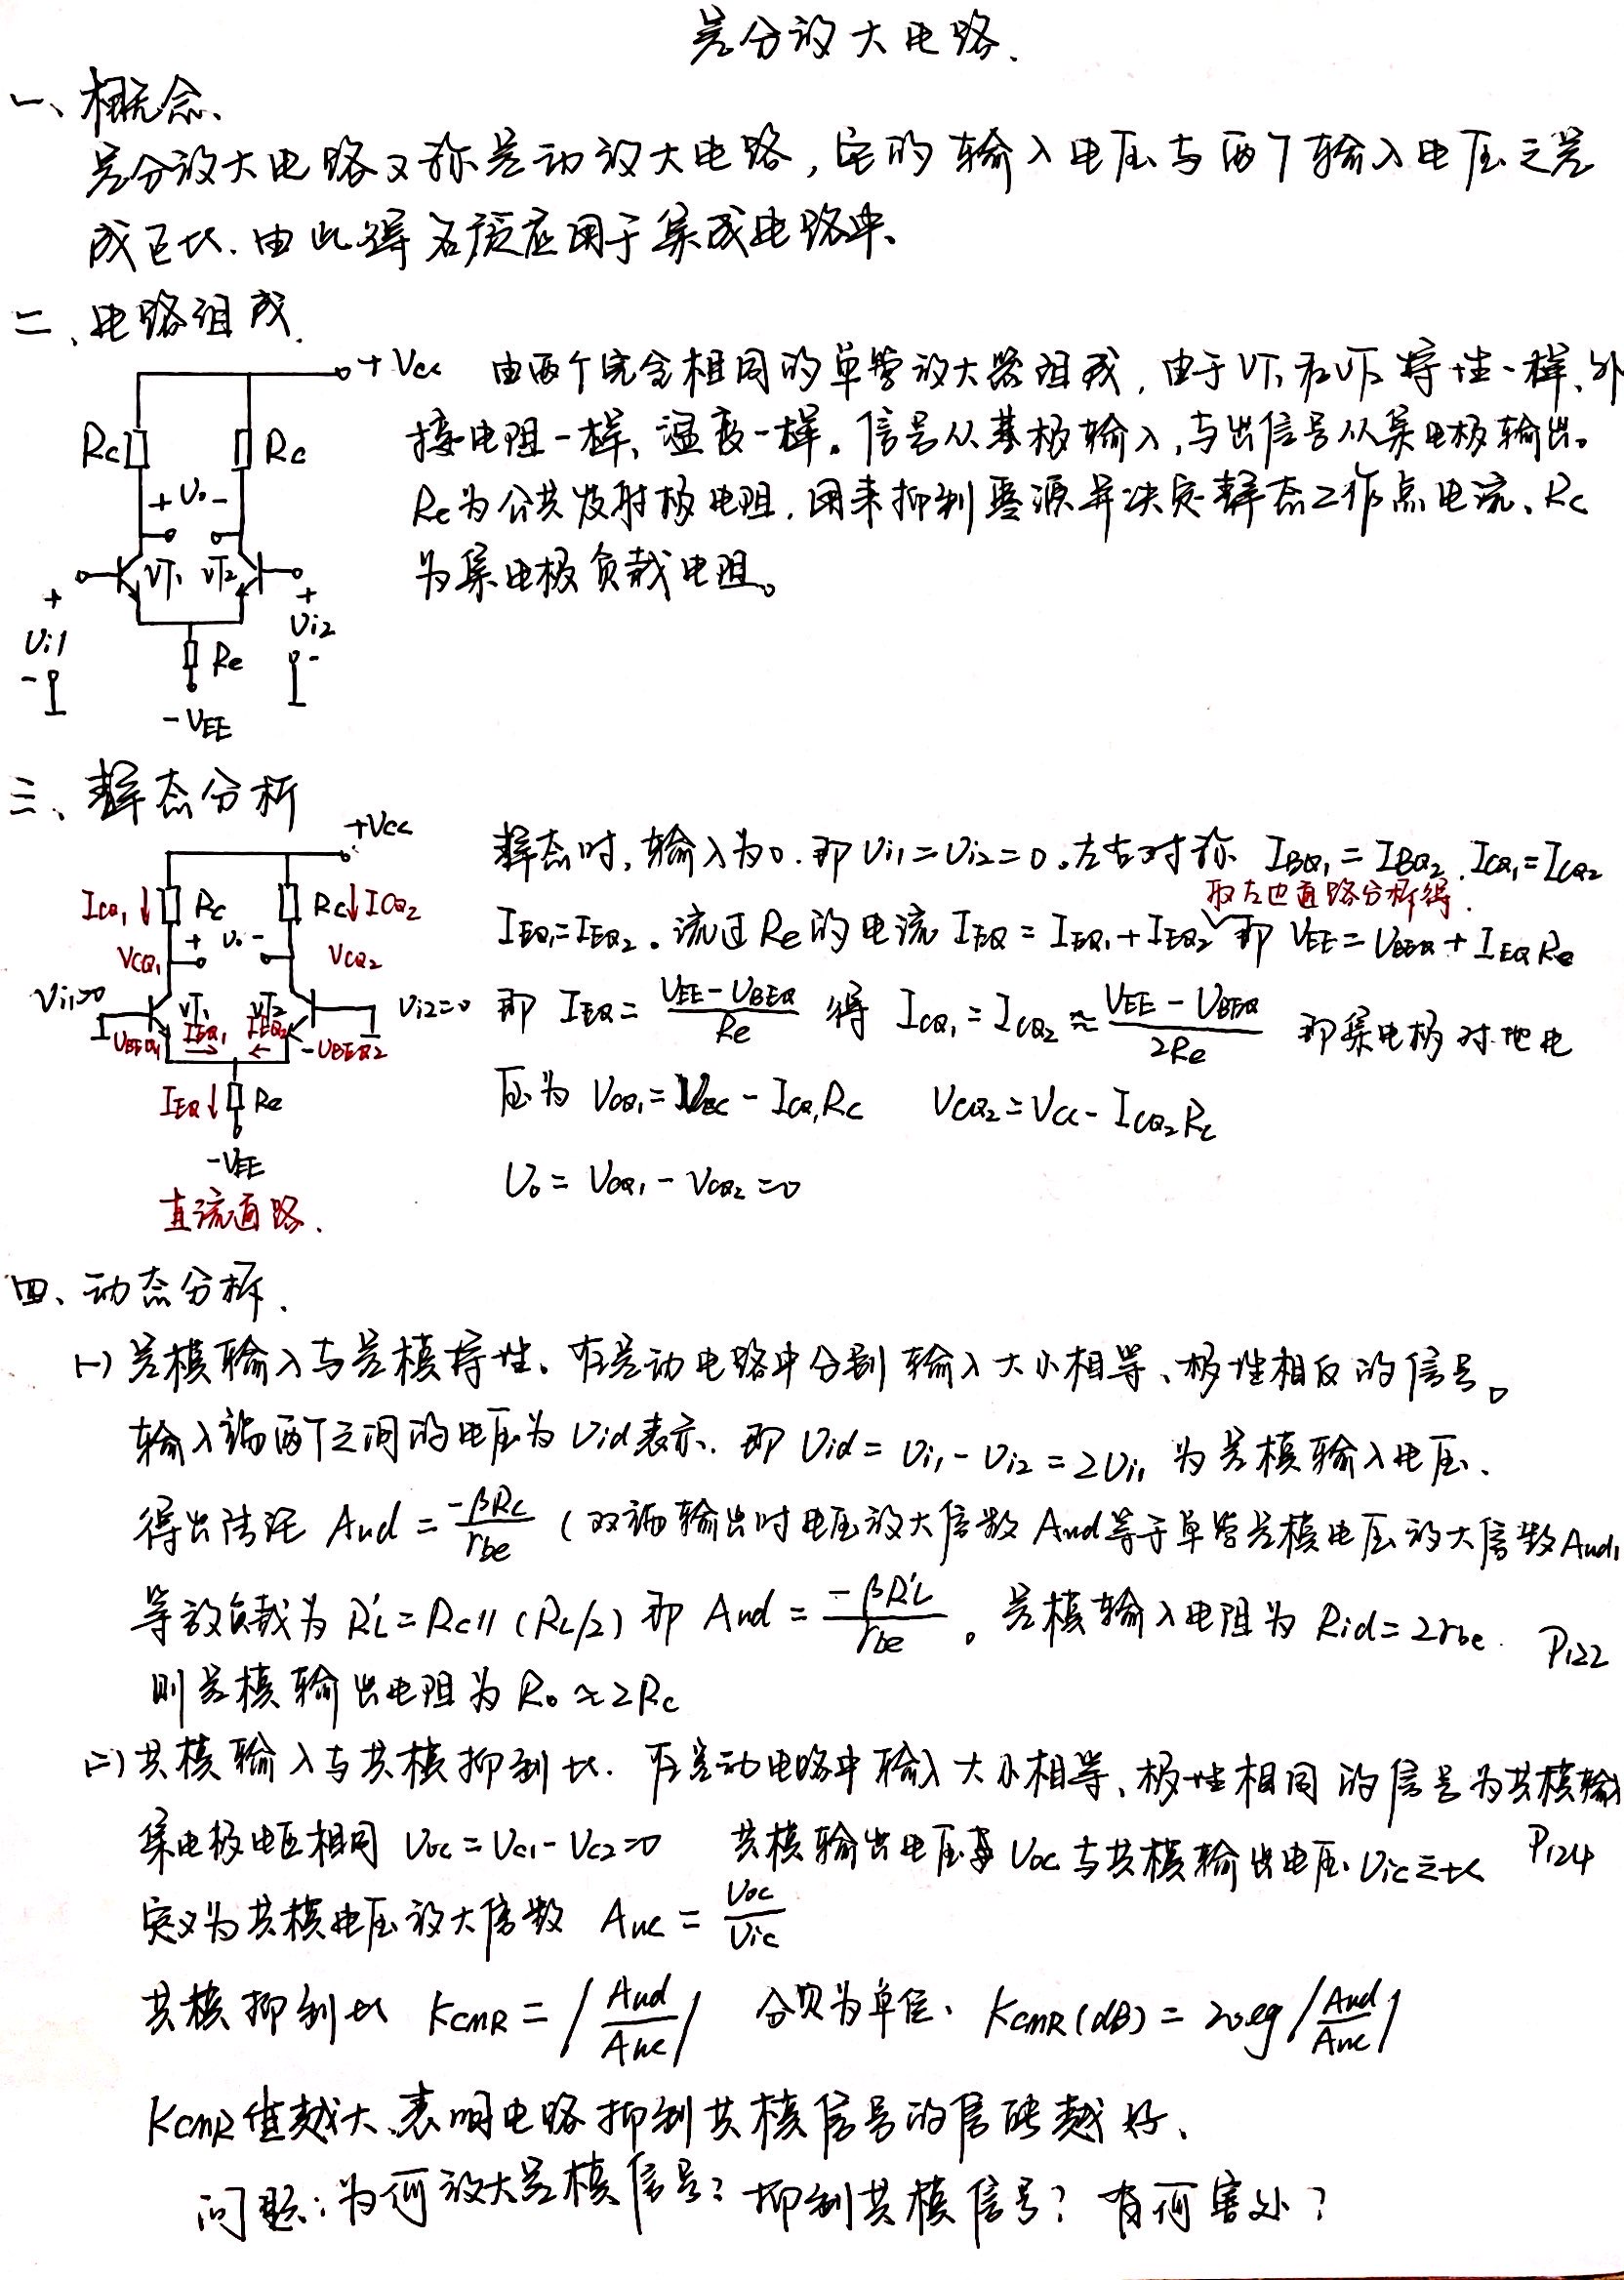 差分放大电路.
一、概念、
差分放大电路又称差动放大电路,它的输入电压与两个输入电压之差
成正比.由此得名广泛应用于集成电路中、
二、电路组成.
+Vcc
Rc
Rc
+ Uo -
VT1 VT2
+
Ui1
-
+
Ui2
-
Re
-VEE
由两个完全相同的单管放大器组成,由于VT1和VT2特性一样、外
接电阻一样、温度一样。信号从基极输入,与出信号从集电极输出。
Re为公共发射极电阻,用来抑制零源并决定静态工作点电流、Rc
为集电极负载电阻。
三、静态分析
+Vcc
ICQ1↓ Rc Rc↓ICQ2
+ Uo -
VCQ1 VCQ2
Vi1=0 VT1 VT2 Ui2=0
UBEQ1 IEQ1 IEQ2 -UBEQ2
IEQ↓ Re
-VEE
直流通路.
静态时,输入为0.即Ui1=Ui2=0。左右对称 IBQ1=IBQ2.ICQ1=ICQ2
取左边直路分析得.
IEQ1=IEQ2。流过Re的电流IEQ=IEQ1+IEQ2 即 VEE=UBEQ+IEQRe
即 IEQ=(VEE-UBEQ)/Re 得 ICQ1=ICQ2≈(VEE-UBEQ)/2Re 即集电极对地电
压为 VCQ1=VCC-ICQ1Rc VCQ2=VCC-ICQ2Rc
Uo=VCQ1-VCQ2=0
四、动态分析.
(一)差模输入与差模特性、在差动电路中分别输入大小相等、极性相反的信号。
输入端两个之间的电压为Uid表示.即Uid=Ui1-Ui2=2Ui1为差模输入电压、
得出结论 Aud=-βRc/rbe (双端输出时电压放大倍数Aud等于单管差模电压放大倍数Aud1
等效负载为R'L=Rc//(RL/2)即Aud=-βR'L/rbe。差模输入电阻为Rid=2rbe. P122
则差模输出电阻为Ro≈2Rc
(二)共模输入与共模抑制比.在差动电路中输入大小相等、极性相同的信号为共模输入
集电极电压相同 Uoc=Uc1-Uc2=0 共模输出电压Uoc与共模输出电压Uic之比 P124
定义为共模电压放大倍数 Auc=Uoc/Uic
共模抑制比 KCMR=|Aud/Auc| 分贝为单位、KCMR(dB)=20lg|Aud/Auc|
KCMR值越大、表明电路抑制共模信号的信能越好、
问题:为何放大差模信号?抑制共模信号?有何害处?